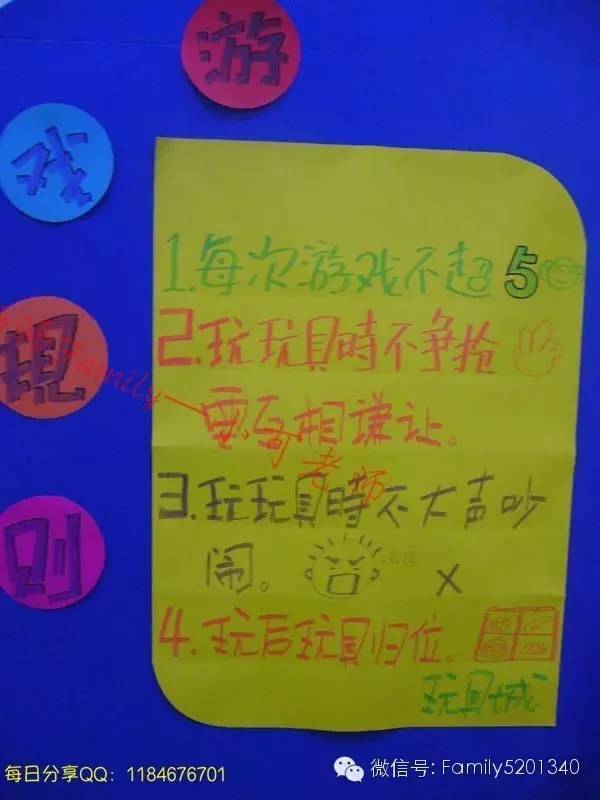 游
戏
规
则
1.每次游戏不超5
2.玩玩具時不争抢
要互相谦让。
3.玩玩具時不大声吵
闹。 x
4.玩后玩具归位。
玩具城
老师
每日分享QQ：1184676701
微信号: Family5201340